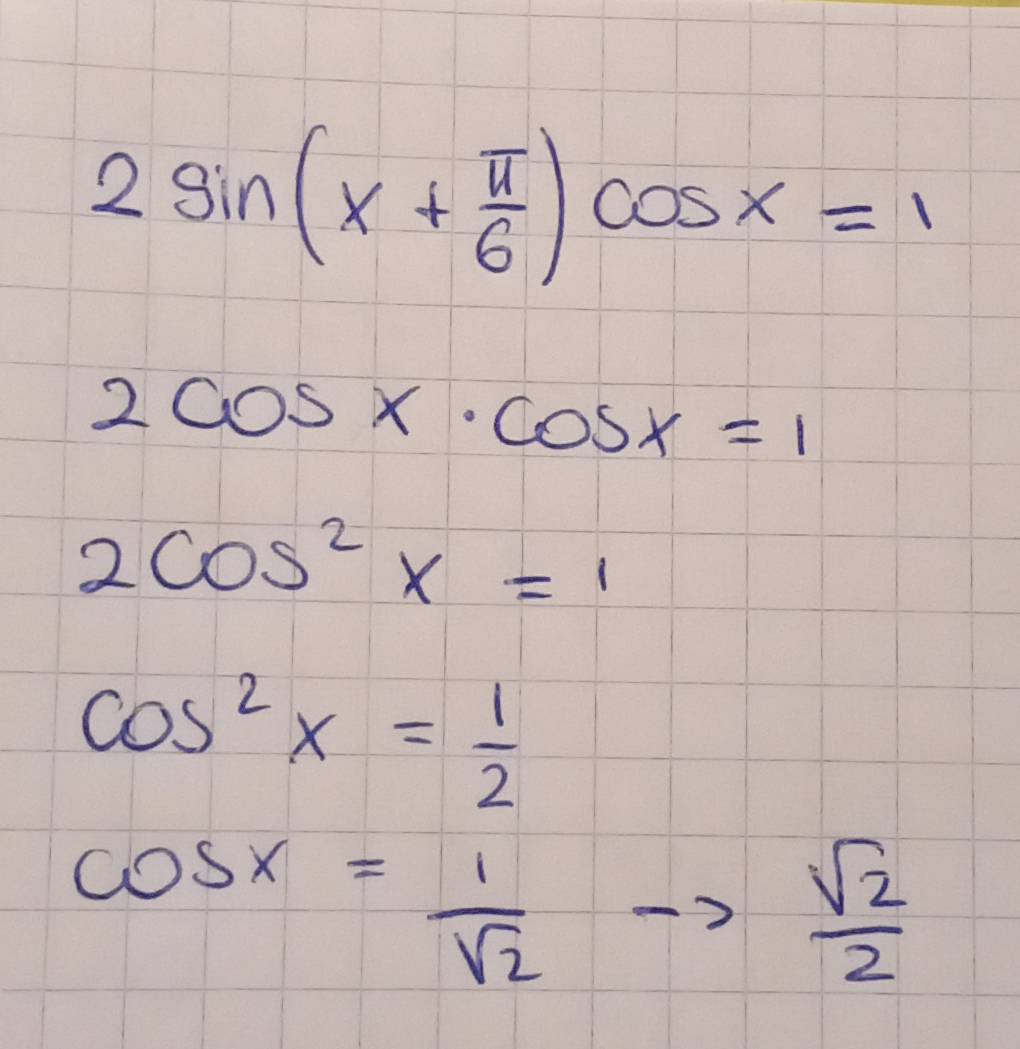 2 sin(x + π/6) cosx = 1
2 cos x · cosx = 1
2 cos² x = 1
cos² x = 1/2
cosx = 1/√2 -> √2/2